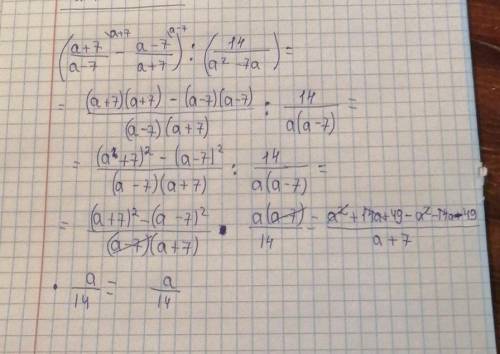 ((a+7)/(a-7) \a+7 - (a-7)/(a+7) \a-7) : (14/(a² - 7a)) =
= ((a+7)(a+7) - (a-7)(a-7))/((a-7)(a+7)) : 14/(a(a-7)) =
= ((a+7)² - (a-7)²)/((a-7)(a+7)) : 14/(a(a-7)) =
= ((a+7)² - (a-7)²)/((a-7)(a+7)) · a(a-7)/14 = (a²+14a+49-a²-14a-49)/(a+7)
· a/14 = a/14